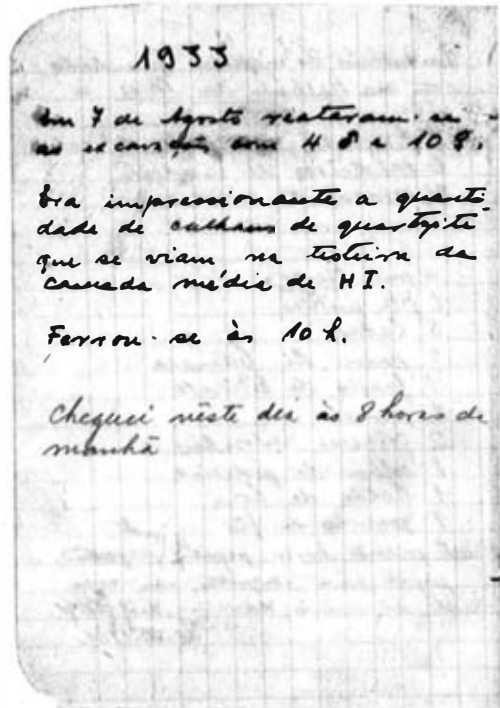 1933
Em 7 de Agosto reataram-se
as escavações com 4 ♂ e 10 ♀.
Era impressionante a quanti-
dade de calhaus de quartzite
que se viam na testeira da
camada média de HI.
Ferrou-se às 10 h.
Cheguei nêste dia às 8 horas da
manhã